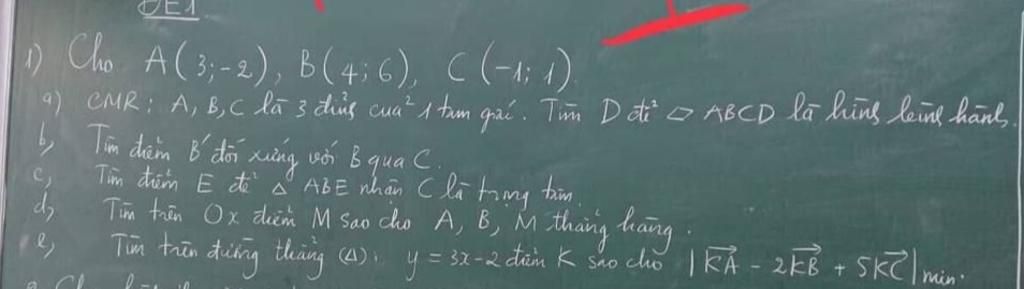 ĐE1
1) Cho A(3;-2), B(4;6), C(-1;1)
a) CMR: A, B, C là 3 đỉnh của 1 tam giác. Tìm D để ▱ ABCD là hình bình hành.
b, Tìm điểm B' đối xứng với B qua C.
c, Tìm điểm E để △ ABE nhận C là trọng tâm.
d, Tìm trên Ox điểm M sao cho A, B, M thẳng hàng.
e, Tìm trên đường thẳng (Δ): y = 3x-2 điểm K sao cho |K⃗A⃗ - 2K⃗B⃗ + 5K⃗C⃗| min.